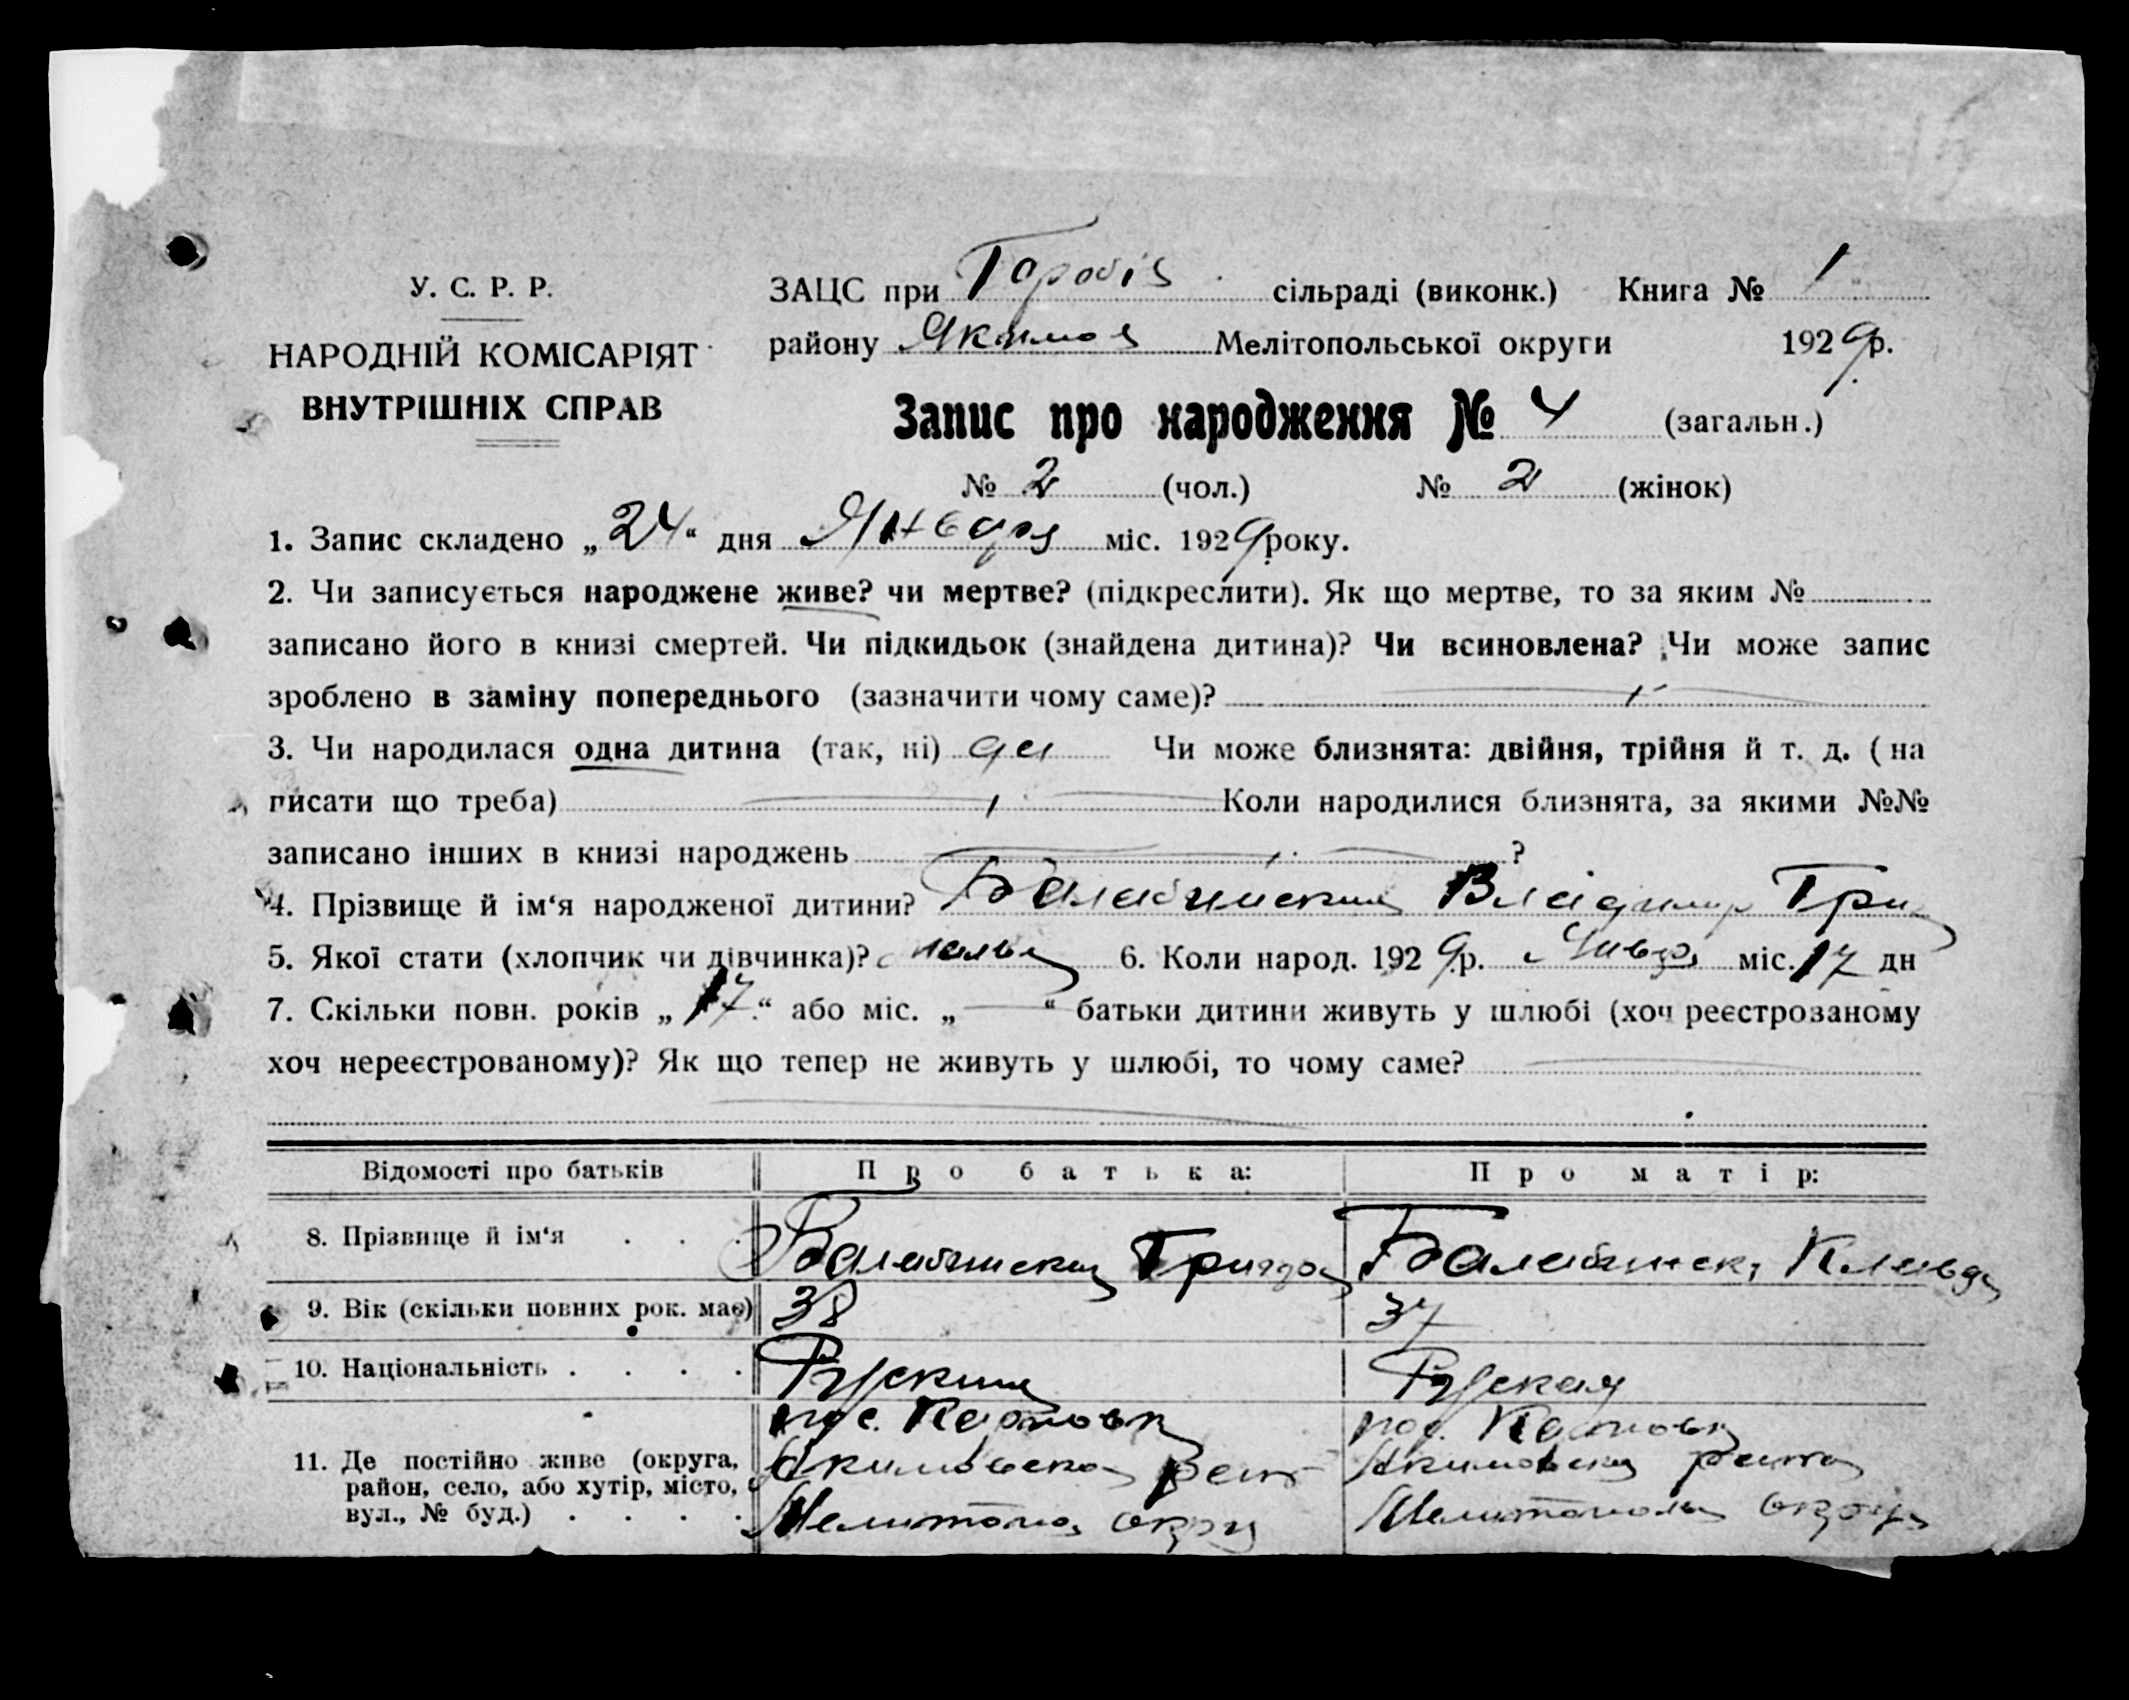 У. С. Р. Р.
НАРОДНІЙ КОМІСАРІЯТ
ВНУТРІШНІХ СПРАВ
ЗАЦС при сільраді (виконк.) Книга № 1
району Якимов Мелітопольської округи 1929 р.
Запис про народження № 4 (загальн.)
№ 2 (чол.) № 2 (жінок)
1. Запис складено „24“ дня Января міс. 1929 року.
2. Чи записується народжене живе? чи мертве? (підкреслити). Як що мертве, то за яким №
записано його в книзі смертей. Чи підкидьок (знайдена дитина)? Чи всиновлена? Чи може запис
зроблено в заміну попереднього (зазначити чому саме)?
3. Чи народилася одна дитина (так, ні) да Чи може близнята: двійня, трійня й т. д. (на
писати що треба) Коли народилися близнята, за якими №№
записано інших в книзі народжень ?
4. Прізвище й ім‘я народженої дитини? Балабинский Владимир Григ
5. Якої стати (хлопчик чи дівчинка)? 6. Коли народ. 1929 р. Января міс. 17 дн
7. Скільки повн. років „17“ або міс. „—“ батьки дитини живуть у шлюбі (хоч реєстрованому
хоч нереєстрованому)? Як що тепер не живуть у шлюбі, то чому саме?
Відомості про батьків Про батька: Про матір:
8. Прізвище й ім‘я . . . Балабинский Григор Балабинск Клавд
9. Вік (скільки повних рок. має) 38 37
10. Національність . . . . Руский Руская
11. Де постійно живе (округа,
район, село, або хутір, місто,
вул., № буд.) . . . .
Мелитопол округ Мелитопол округ